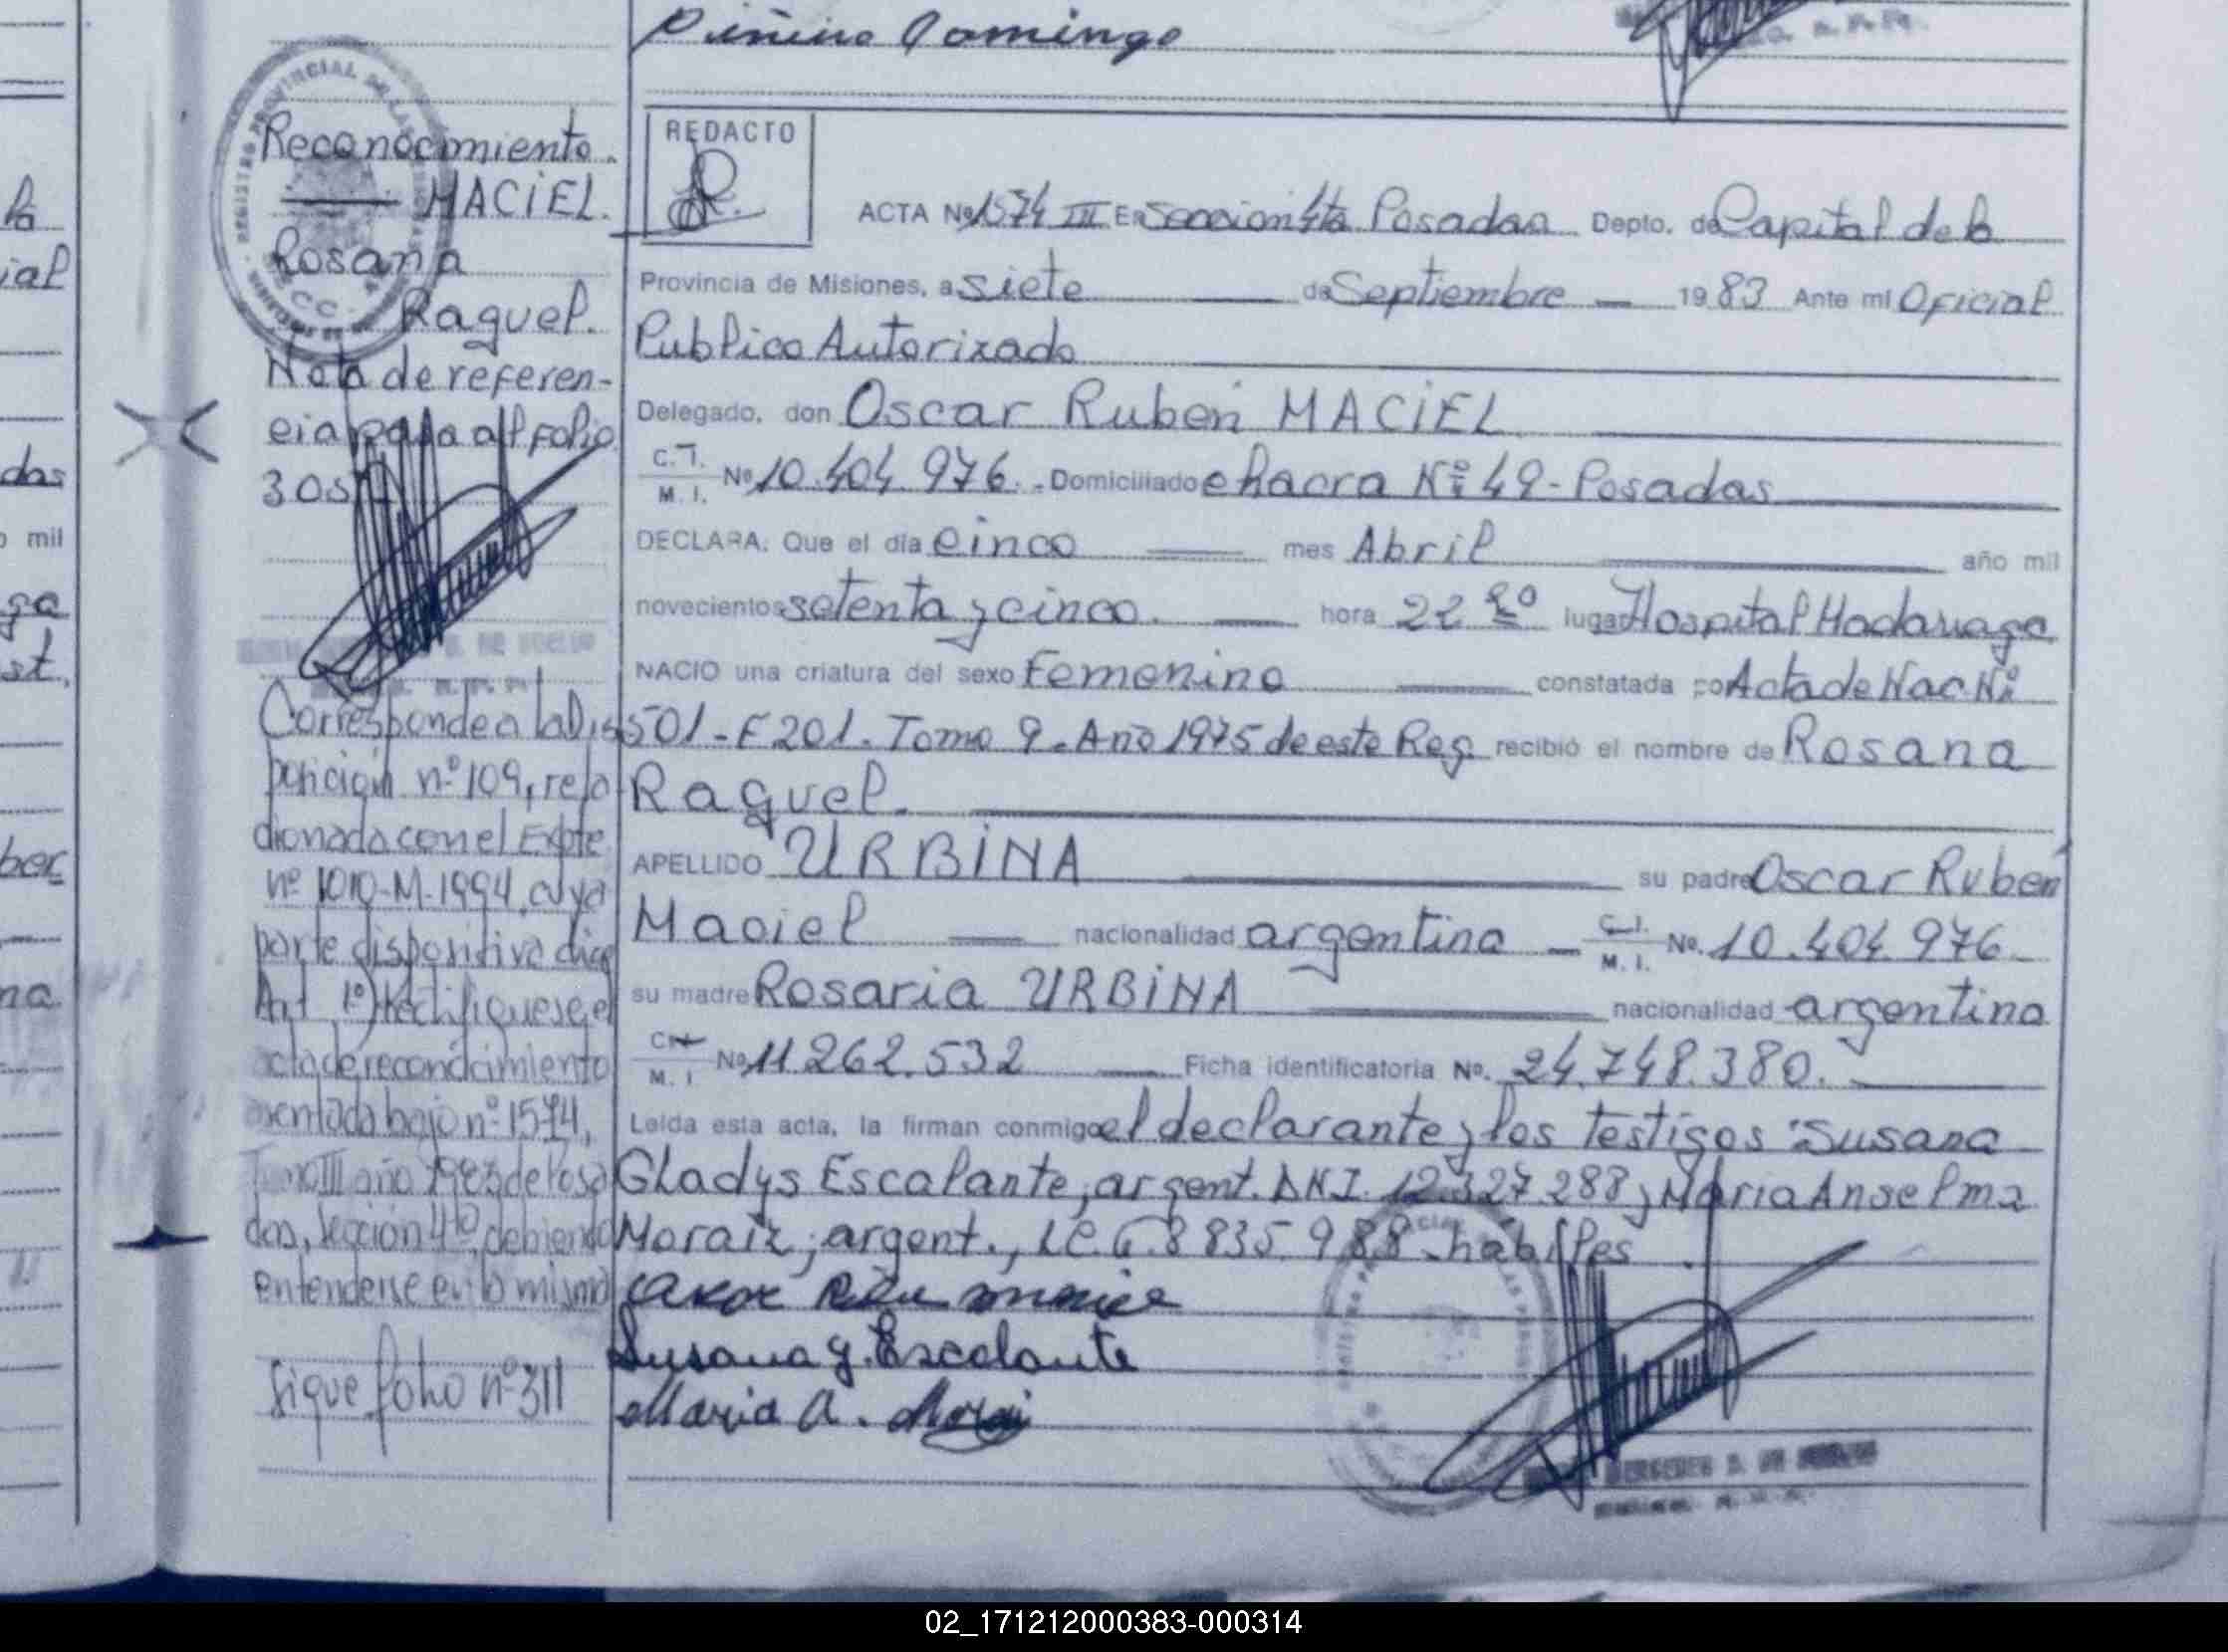 Domingo
Reconocimiento.
MACIEL.
Rosana
Raquel.
Nota de referen-
cia pasa al folio
305
Corresponde a la Dis
posicion nº 109, rela
cionada con el Expte
nº 1010-M-1994, cuya
parte dispositiva dice
Art 1º) Rectifiquese el
acta de reconocimiento
asentada bajo nº 1574,
Tomo III año 1983 de Posa
das, Sección 4ta, debiendo
entenderse en la misma
sigue folio nº 311
REDACTO
ACTA Nº 1574 III En Seccion 4ta Posadas Depto. de Capital de la
Provincia de Misiones, a siete de Septiembre 1983 Ante mi Oficial
Publico Autorizado
Delegado, don Oscar Ruben MACIEL
C.I. M. I. Nº 10.404.976. Domiciliado chacra Nº 49 - Posadas
DECLARA: Que el día cinco mes Abril año mil
novecientos setenta y cinco. hora 22 lugar Hospital Madariaga
NACIO una criatura del sexo Femenino constatada por Acta de Nac Nº
501 - F 201. Tomo 9. Año 1975 de este Reg. recibió el nombre de Rosana
Raquel.
APELLIDO URBINA su padre Oscar Rubén
Maciel nacionalidad argentina C.I. M. I. Nº. 10.404.976
su madre Rosaria URBINA nacionalidad argentina
C.I. M. I Nº 11262.532 Ficha identificatoria Nº. 24.748.380.
Leída esta acta, la firman conmigo el declarante y los testigos: Susana
Gladys Escalante, argent. DNI. 12.327 288 y Maria Anselma
Moraiz, argent., LC. 6.8835.988 habiles
Susana G. Escalante
Maria A.
02_171212000383-000314